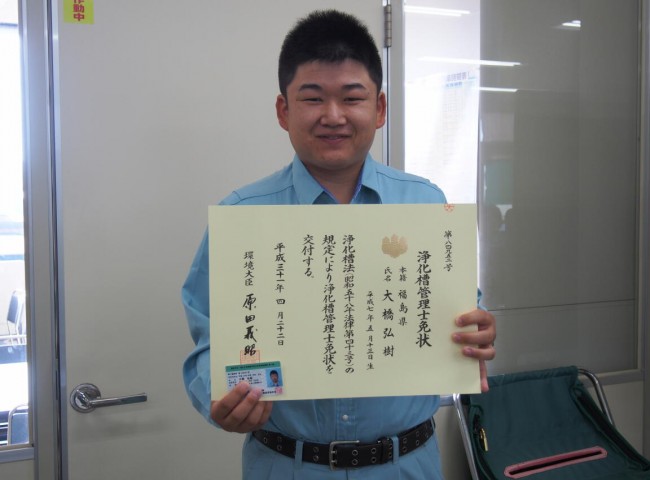 作動中
第八四九五二号
浄化槽管理士免状
本籍 福島県
氏名 大橋弘樹
平成七年五月十三日生
浄化槽法(昭和五十八年法律第四十三号)の
規定により浄化槽管理士免状を
交付する。
平成三十一年四月二十二日
環境大臣 原田義昭